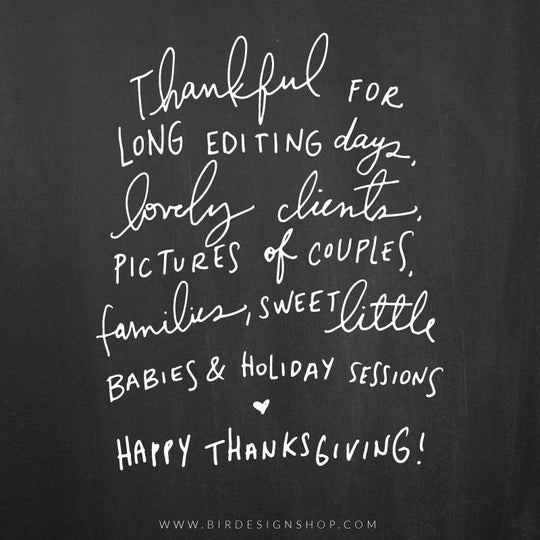 Thankful FOR
LONG EDITING days,
lovely clients,
PICTURES of COUPLES,
families, SWEET little
BABIES & HOLIDAY SESSIONS
HAPPY THANKSGIVING!
WWW.BIRDESIGNSHOP.COM